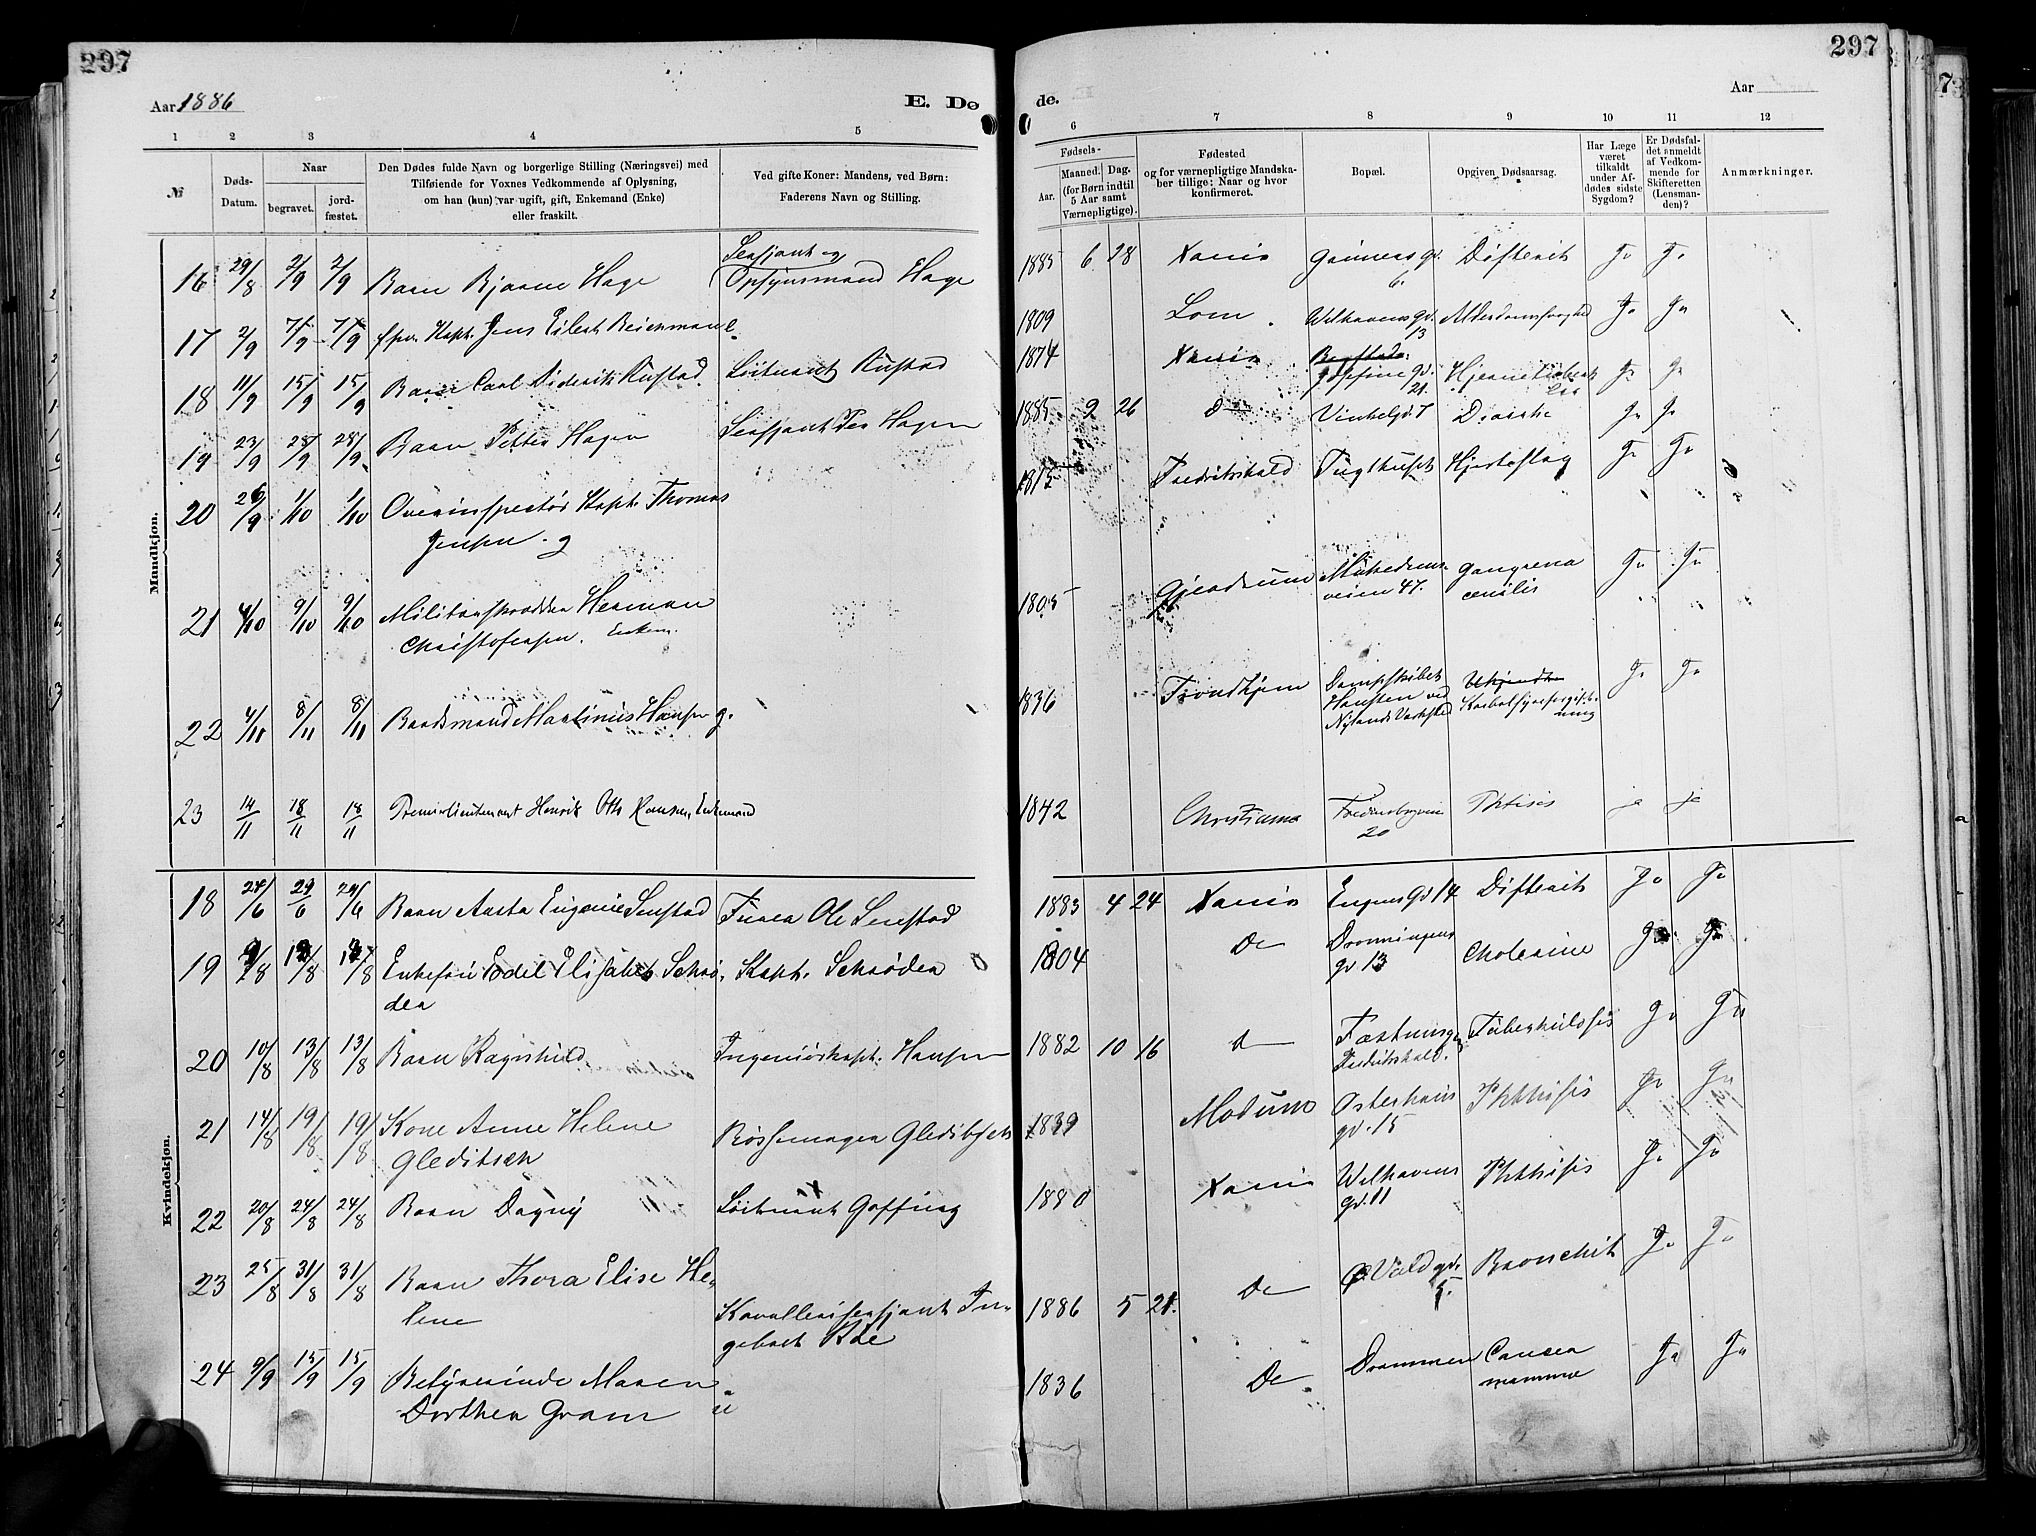 297
297
Aar 1886
E. Dø
de.
Aar
1 2 3 4 5
6 7 8 9 10 11 12
№
Døds-
Datum.
Naar
begravet.
jord-
fæstet.
Den Dødes fulde Navn og borgerlige Stilling (Næringsvei) med
Tilføiende for Voxnes Vedkommende af Oplysning,
om han (hun) var ugift, gift, Enkemand (Enke)
eller fraskilt.
Ved gifte Koner: Mandens, ved Børn:
Faderens Navn og Stilling.
Fødsels-
Aar.
Maaned.
Dag.
(for Børn indtil
5 Aar samt
Værnepligtige).
Fødested
og for værnepligtige Mandska-
ber tillige: Naar og hvor
konfirmeret.
Bopæl.
Opgiven Dødsaarsag.
Har Læge
været
tilkaldt
under Af-
dødes sidste
Sygdom?
Er Dødsfal-
det anmeldt
af Vedkom-
mende for
Skifteretten
(Lensman-
den)?
Anmærkninger.
Mandkjøn.
16 29/8 2/9 2/9 Barn Bjarne Hage Sersjant og
Opsynsmand Hage 1885 6 28 Xania Grüners gd. 6. Difterit Ja Ja
17 2/9 7/9 7/9 Kapt. Jens Eilert Reichman e. 1809 Lom Welhavens gd. 13 Alderdomssvaghed Ja Ja
18 11/9 15/9 15/9 Barn Carl Diderik Rustad Løitnant Rustad 1874 Xania Josefine gd. 21. Ja Ja
19 23/9 28/9 28/9 Barn Petter Hagen Sersjant Hagen 1885 2 26 D Vinkelgd. 7 Diarrhe Ja Ja
20 26/9 1/10 1/10 Overinspectør Kapt. Thomas
Jensen g 1815 Fredrikshald Tugthuset Hjerteslag Ja Ja
21 4/10 9/10 9/10 Militærskrædder Herman
Christofersen. Enkem. 1805 Gjerdrum Maridals-
veien 47. Gangrena
senilis Ja Ja
22 4/11 8/11 8/11 Baadsmand Martinus Hansen g. 1836 Trondhjem Dampskibet
Hansten ved
Nylands Værksted Ukjendt
Karbolsyreforgift-
ning Ja Ja
23 14/11 18/11 18/11 Premierlieutenant Henrik Otto Hansen, Enkemand 1842 Christiania 20 Phtisis ja ja
Kvindekjøn.
18 24/6 29/6 29/6 Barn Aasta Eugenie Senstad Furer Ole Senstad 1883 4 24 Xania Engens gd 14 Difterit Ja Ja
19 9/8 12/8 12/8 Enkefru Bodel Elisabet Schrø-
der Kapt. Schrøder 1804 Do Dronningens
gd 13 Cholerine Ja Ja
20 10/8 13/8 13/8 Barn Ragnhild Ingeniørkapt. Hansen 1882 10 16 d Fæstningen
Fredrikshald. Tuberkulosis Ja Ja
21 14/8 19/8 19/8 Kone Anne Helene
Gleditsch Bøssemager Gleditsch 1839 Modum Osterhaus
gd. 15 Phthisis Ja Ja
22 20/8 24/8 24/8 Barn Dagny Løitnant Goffeng 1880 Xania Welhavens
gd. 11 Phthisis Ja Ja
23 25/8 31/8 31/8 Barn Thora Elise He-
lene Kavallerisersjant In-
gebret Røe 1886 5 21. Do Ø. Voldgd.
5. Bronchit Ja Ja
24 9/9 15/9 15/9 Bestyrerinde Maren
Dorthea Gram u 1836 Do Drammen Cancer
mamma Ja Ja